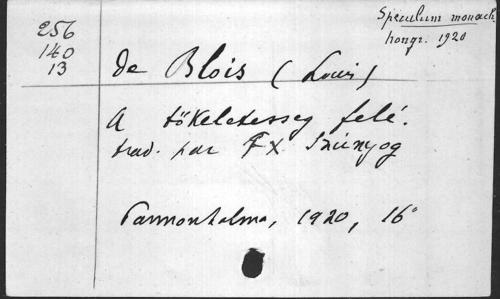 256
140
13
Speculum monach.
hongr. 1920
de Blois (Louis)
A tökeletesseg felé.
trad. par FX Szúnyog
Pannonhalma, 1920, 16°